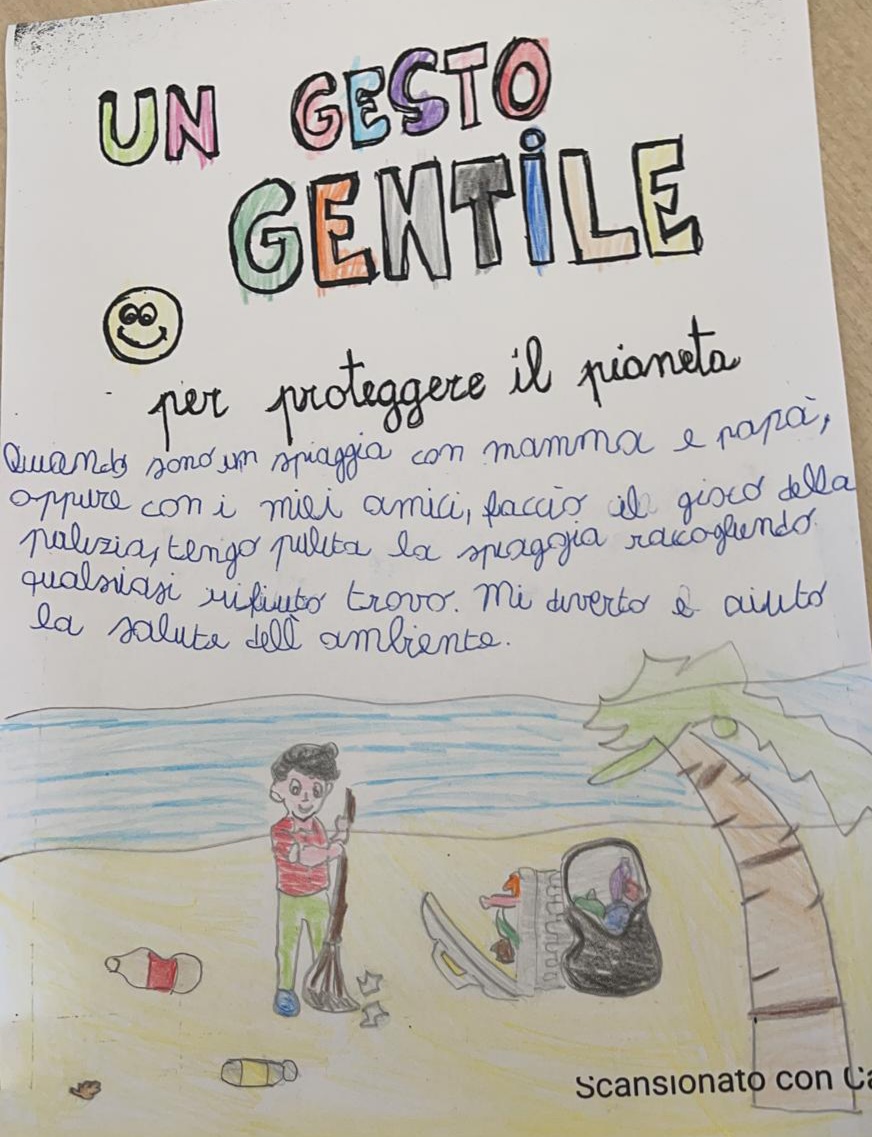 UN GESTO
GENTILE
per proteggere il pianeta
Quando sono in spiaggia con mamma e papà,
oppure con i miei amici, faccio il gioco della
pulizia, tengo pulita la spiaggia racogliendo
qualsiasi rifiuto trovo. Mi diverto e aiuto
la salute dell'ambiente.
Scansionato con Ca